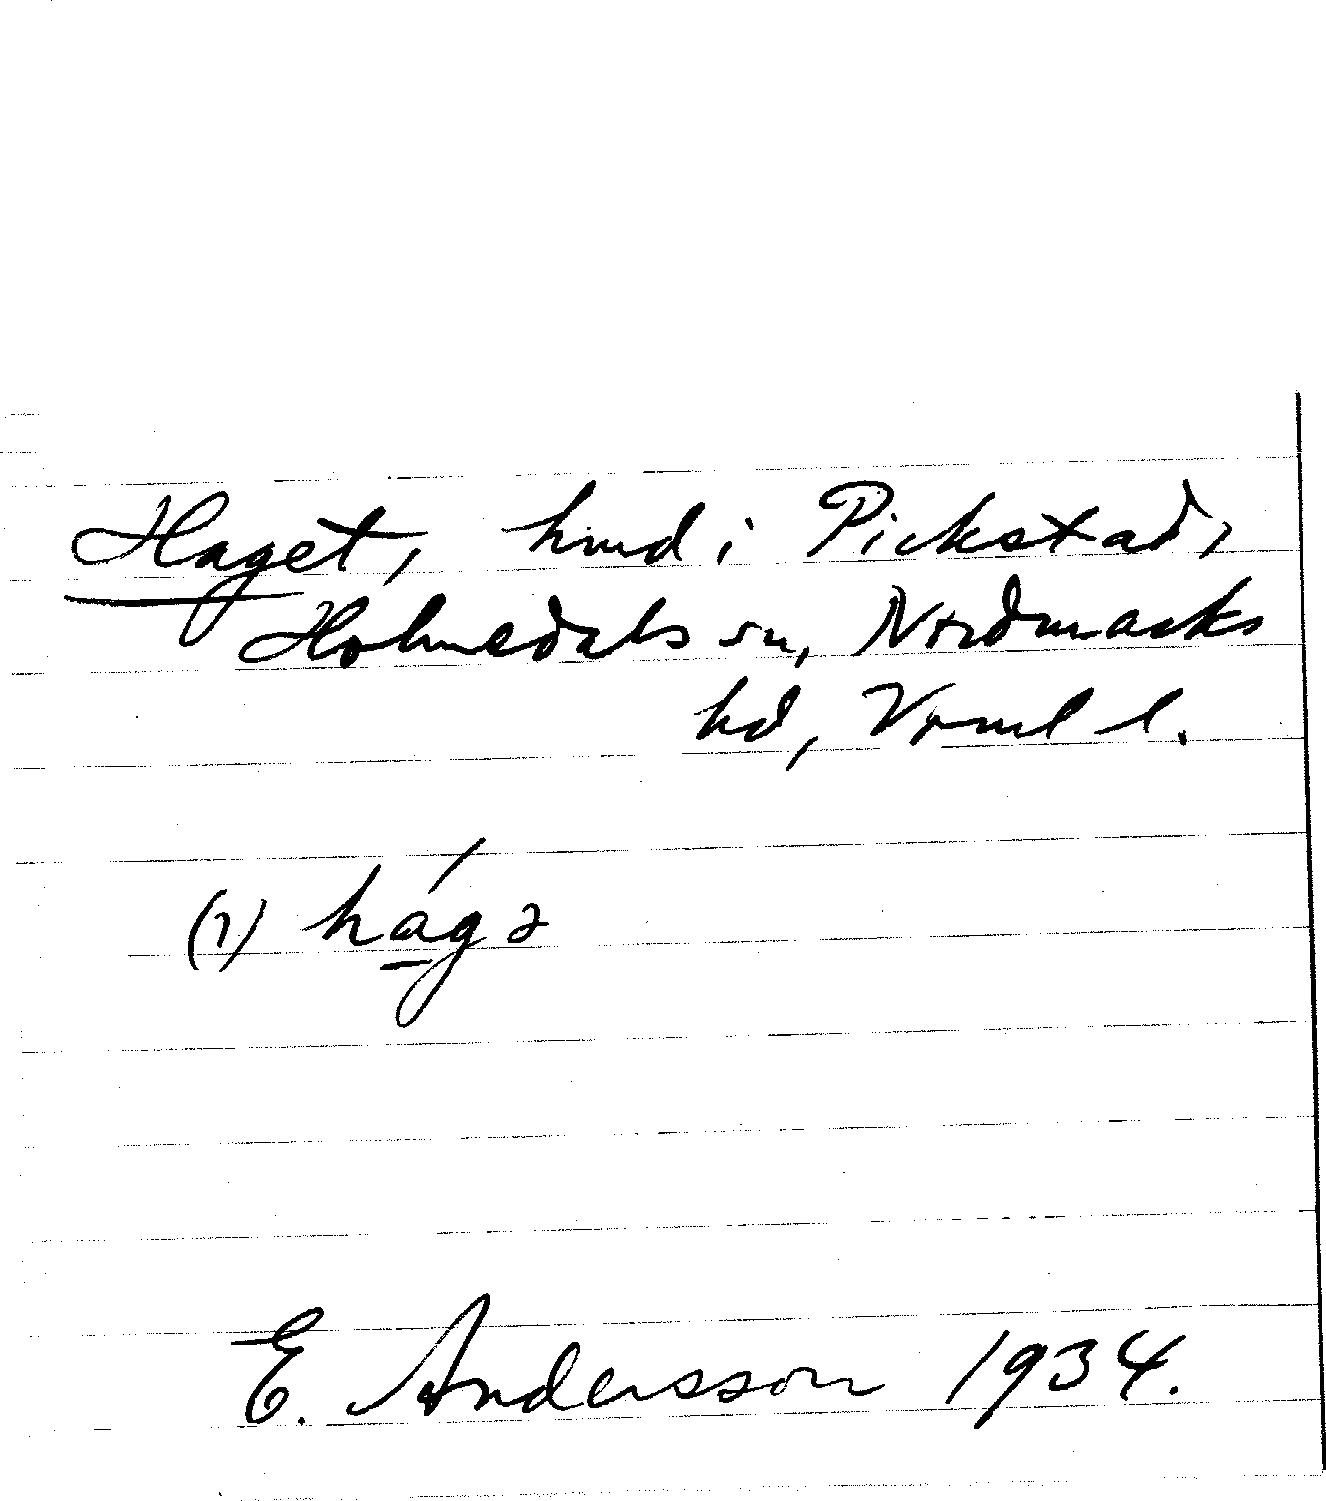 Haget, hmd i Pickstad,
Holmedals sn, Nordmarks
hd, Vrml l.
(1) hágə
E. Andersson 1934.